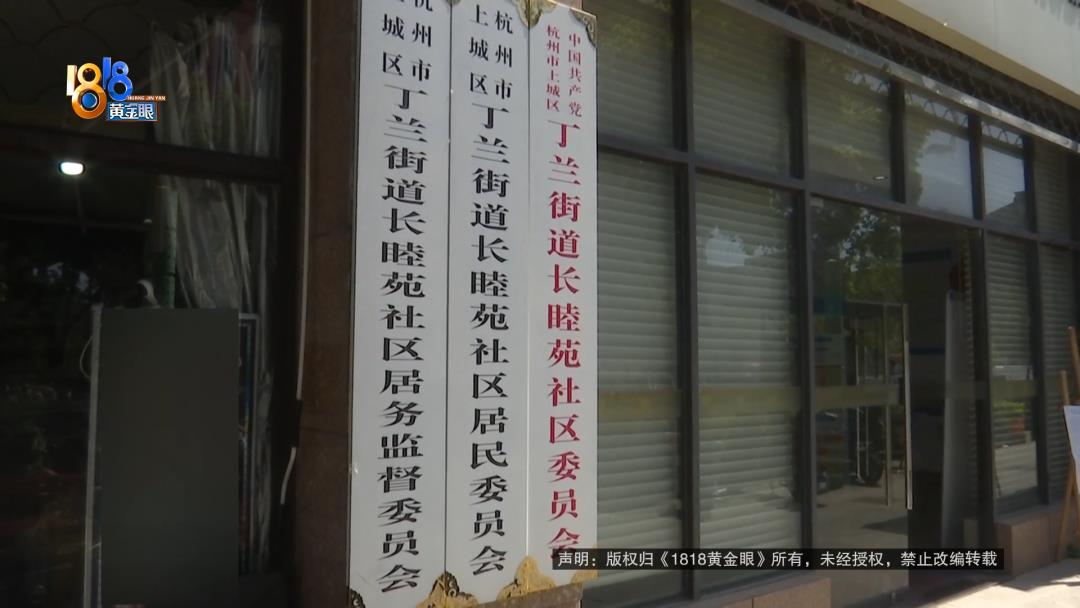 1818
HUANG JIN YAN
黄金眼
杭州市
上城区
丁兰街道长睦苑社区居务监督委员会
杭州市
上城区
丁兰街道长睦苑社区居民委员会
中国共产党
杭州市上城区
丁兰街道长睦苑社区委员会
声明：版权归《1818黄金眼》所有，未经授权，禁止改编转载